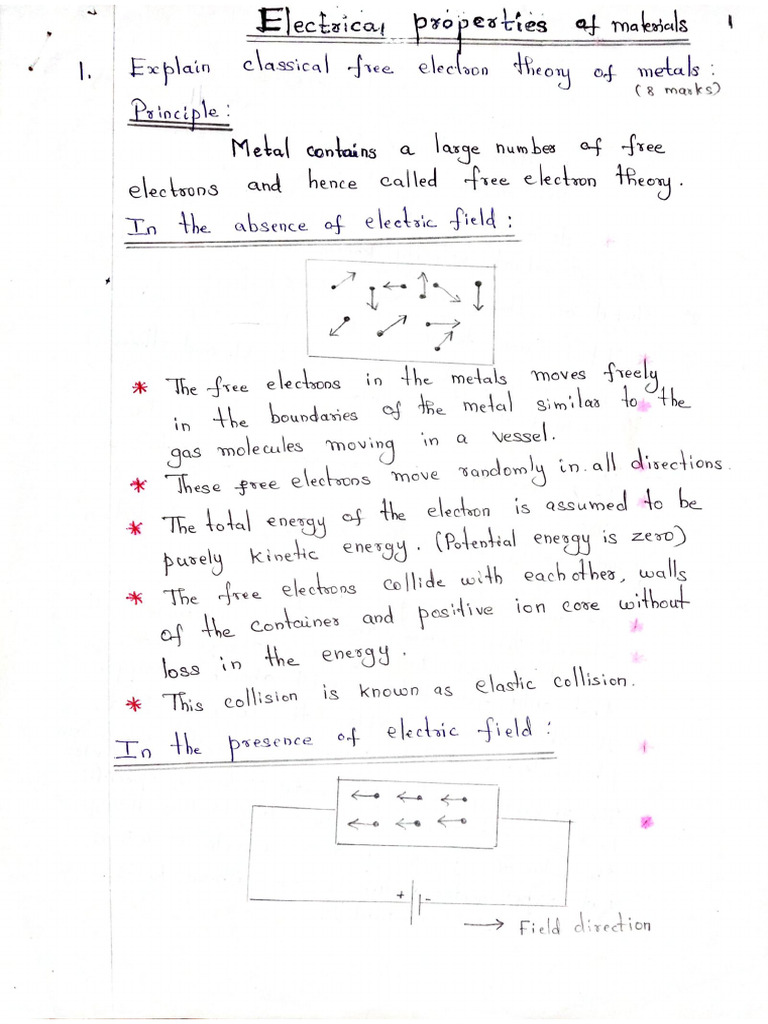 Electrical properties of materials 1
1. Explain classical free electron theory of metals:
(8 marks)
Principle:
Metal contains a large number of free
electrons and hence called free electron theory.
In the absence of electric field:
* The free electrons in the metals moves freely
in the boundaries of the metal similar to the
gas molecules moving in a vessel.
* These free electrons move randomly in all directions.
* The total energy of the electron is assumed to be
purely kinetic energy. (Potential energy is zero)
* The free electrons collide with each other, walls
of the container and positive ion core without
loss in the energy.
* This collision is known as elastic collision.
In the presence of electric field:
+ -
→ Field direction